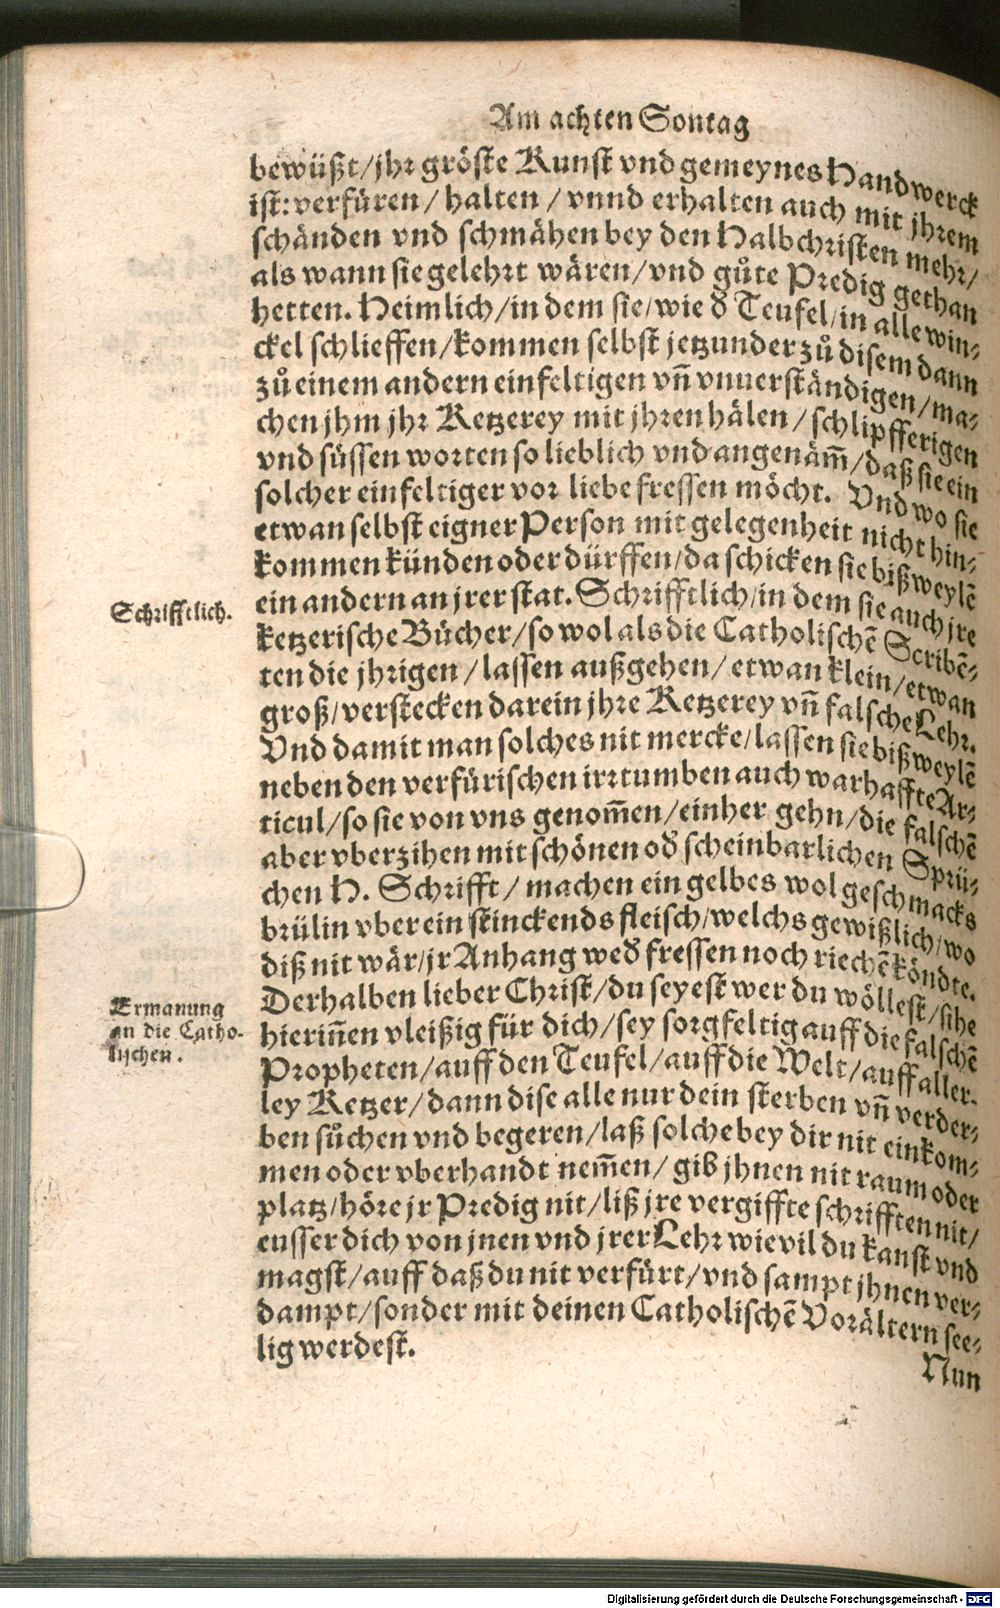 Am achten Sontag
bewüßt/jhr gröste Kunst vnd gemeynes Handwerck
ist: verfüren/ halten / vnnd erhalten auch mit jhrem
schänden vnd schmähen bey den Halbchristen mehr/
als wann sie gelehrt wären/vnd gůte Predig gethan
hetten. Heimlich/in dem sie/wie d̕ Teufel/in alle win-
ckel schlieffen/kommen selbst jetzunder zů disem dann
zů einem andern einfeltigen vñ vnuerständigen/ma-
chen jhm jhr Ketzerey mit jhren hälen/schlipfferigen
vnd süssen worten so lieblich vnd angenäm̃/daß sie ein
solcher einfeltiger vor liebe fressen möcht. Vnd wo sie
etwan selbst eigner Person mit gelegenheit nicht hin-
kommen künden oder dürffen/da schicken sie bißweylẽ
ein andern an jrer stat. Schrifftlich/in dem sie auch jre
Schrifftlich.
ketzerische Bücher/so wol als die Catholischẽ Scribẽ-
ten die jhrigen/lassen außgehen/etwan klein/etwan
groß/verstecken darein jhre Ketzerey vñ falsche Lehr.
Vnd damit man solches nit mercke/lassen sie bißweylẽ
neben den verfürischen irrtumben auch warhaffte Ar-
ticul/so sie von vns genom̃en/einher gehn/die falschẽ
aber vberzihen mit schönen od̕ scheinbarlichen Sprü-
chen H. Schrifft/ machen ein gelbes wol geschmacks
brülin vber ein stinckends fleisch/welchs gewißlich/wo
diß nit wär/jr Anhang wed̕ fressen noch riechẽ köndte.
Derhalben lieber Christ/du seyest wer du wöllest/sihe
Ermanung
an die Catho-
lischen.
hierin̄en vleißig für dich/sey sorgfeltig auff die falschẽ
Propheten/auff den Teufel/auff die Welt/auff aller-
ley Ketzer/dann dise alle nur dein sterben vñ verder-
ben sůchen vnd begeren/laß solche bey dir nit einkom-
men oder vberhandt nem̃en/ gib jhnen nit raum oder
platz/höre jr Predig nit/liß jre vergiffte schrifften nit/
eusser dich von jnen vnd jrer Lehr wie vil du kanst vnd
magst/auff daß du nit verfürt/vnd sampt jhnen ver-
dampt/sonder mit deinen Catholischẽ Vorältern see-
lig werdest.
Nun
Digitalisierung gefördert durch die Deutsche Forschungsgemeinschaft - DFG